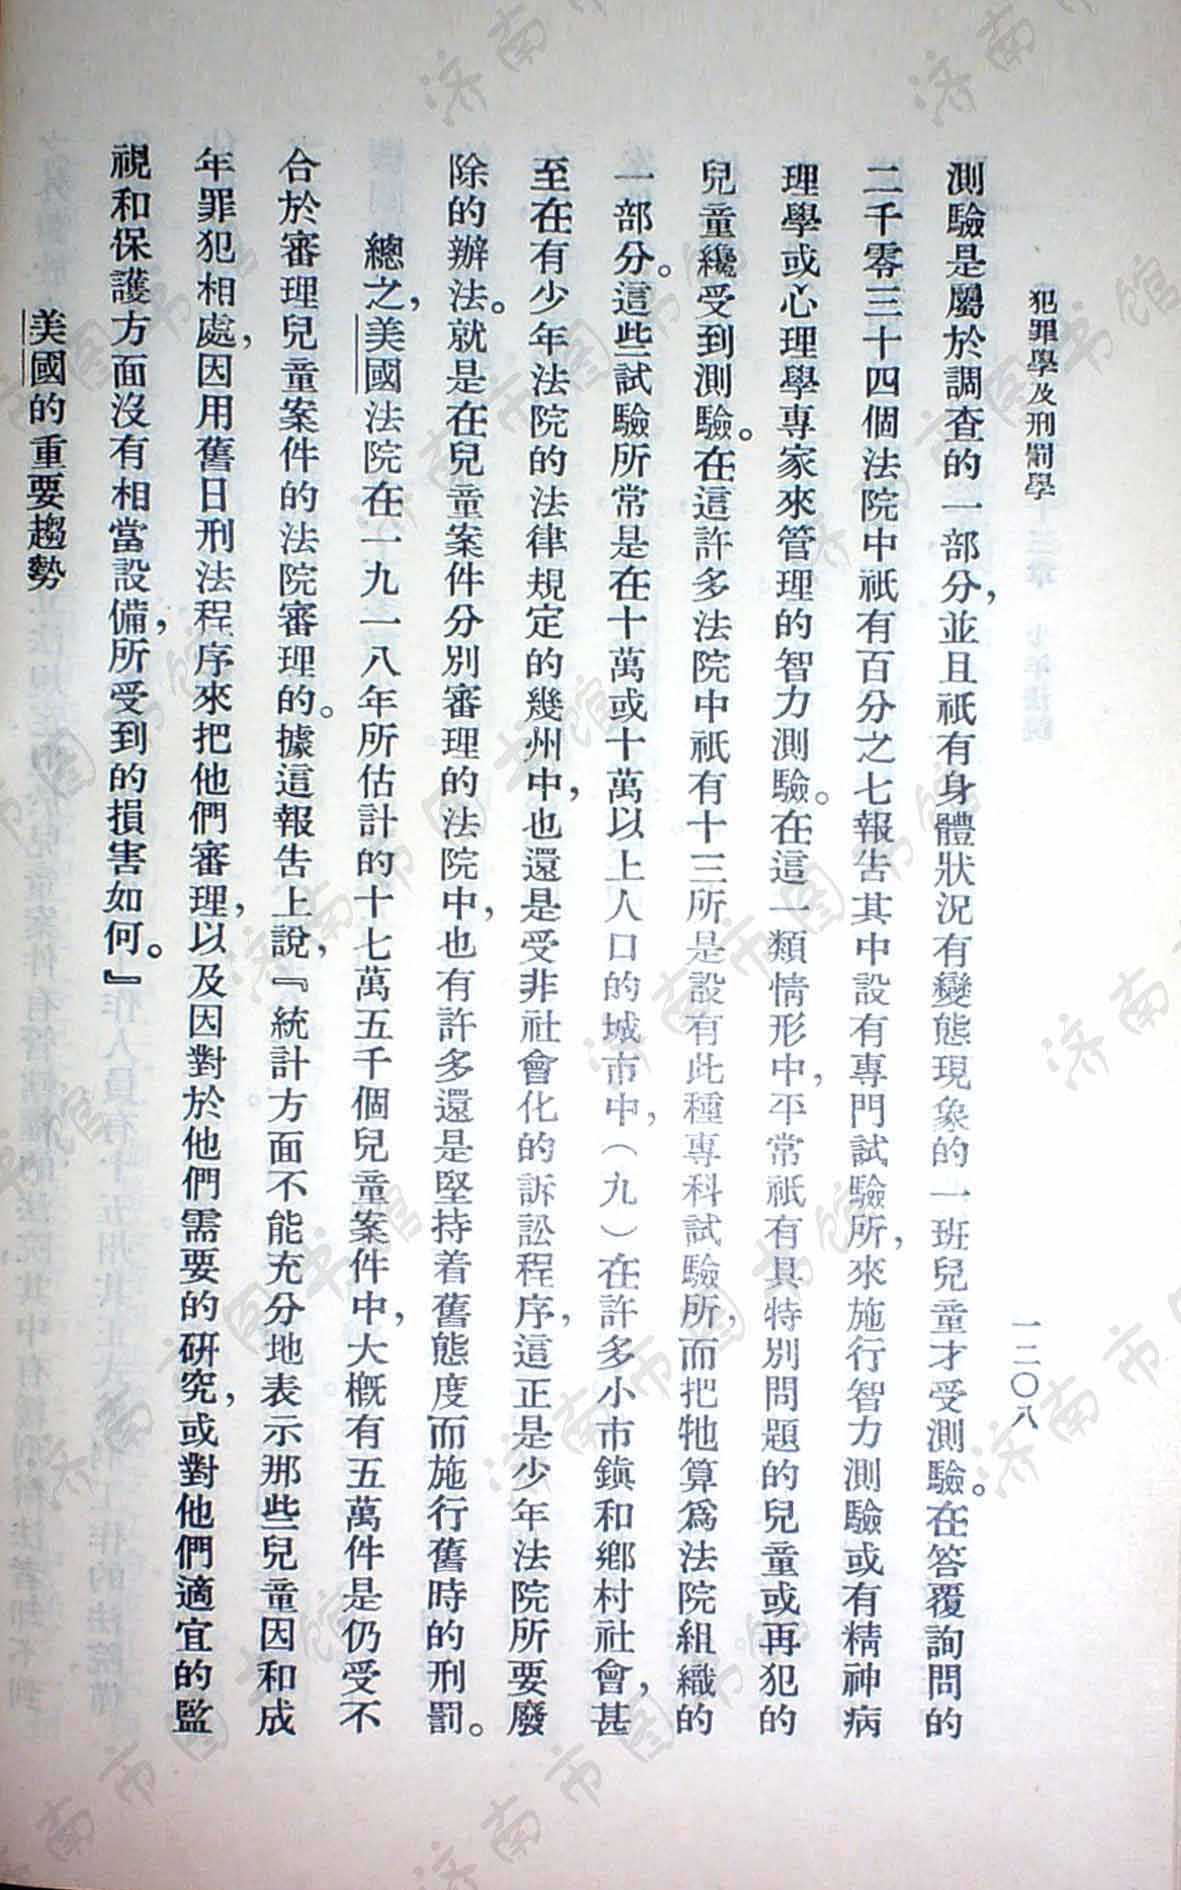 犯罪學及刑罰學
一二〇八
測驗是屬於調查的一部分,並且祇有身體狀況有變態現象的一班兒童才受測驗。在答覆詢問的
二千零三十四個法院中祇有百分之七報告其中設有專門試驗所,來施行智力測驗或有精神病
理學或心理學專家來管理的智力測驗。在這一類情形中,平常祇有具特別問題的兒童或再犯的
兒童纔受到測驗。在這許多法院中祇有十三所是設有此種專科試驗所,而把牠算爲法院組織的
一部分。這些試驗所常是在十萬或十萬以上人口的城市中,(九)在許多小市鎭和鄕村社會,甚
至在有少年法院的法律規定的幾州中,也還是受非社會化的訴訟程序,這正是少年法院所要廢
除的辦法。就是在兒童案件分別審理的法院中,也有許多還是堅持着舊態度而施行舊時的刑罰。
總之,美國法院在一九一八年所估計的十七萬五千個兒童案件中,大槪有五萬件是仍受不
合於審理兒童案件的法院審理的。據這報告上說,『統計方面不能充分地表示那些兒童因和成
年罪犯相處,因用舊日刑法程序來把他們審理,以及因對於他們需要的研究,或對他們適宜的監
視和保護方面沒有相當設備,所受到的損害如何。』
美國的重要趨勢
济南市图书馆